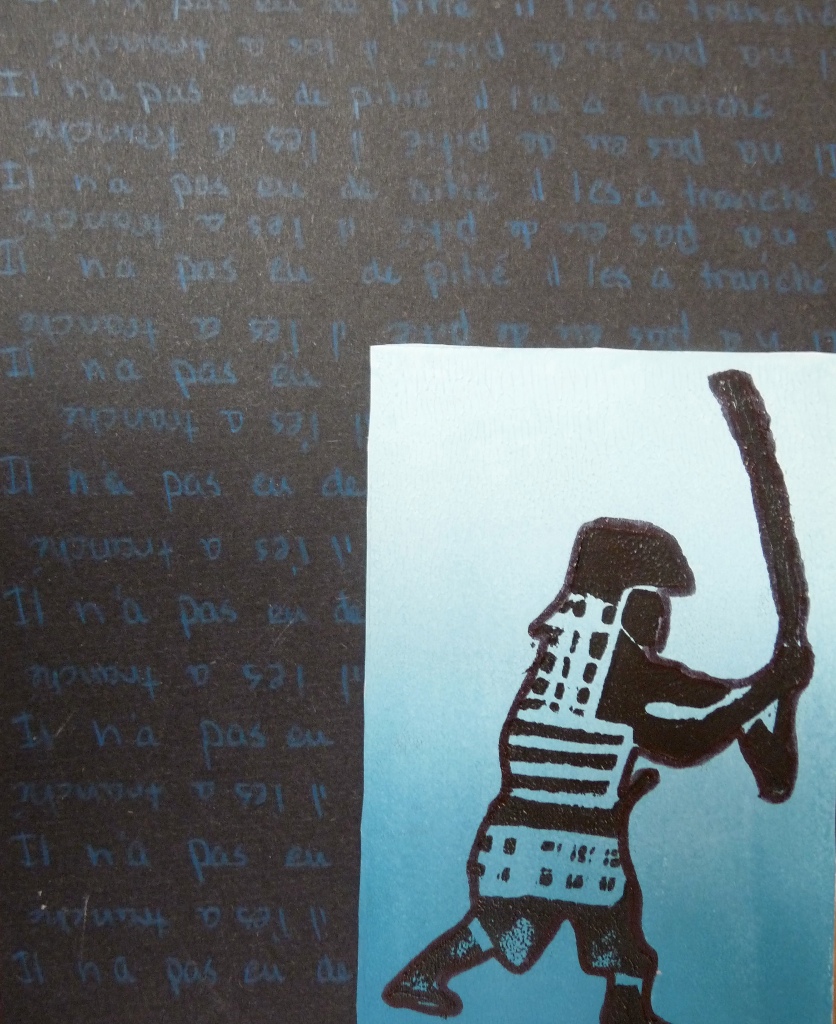 n'a pas eu de pitié il les a tranché
Il n'a pas eu de pitié il l'es a tranché
Il n'a pas eu de pitié il l'es a tranché
Il n'a pas eu de pitié il l'es a tranché
Il n'a pas eu de pitié il l'es a tranché
Il n'a pas eu de pitié il l'es a tranché
Il n'a pas eu de pitié il l'es a tranché
Il n'a pas eu de pitié il l'es a tranché
Il n'a pas eu
il l'es a tranché
Il n'a pas eu de
il l'es a tranché
Il n'a pas eu de
il l'es a tranché
Il n'a pas eu
il l'es a tranché
Il n'a pas eu
il l'es a tranché
Il n'a pas eu de